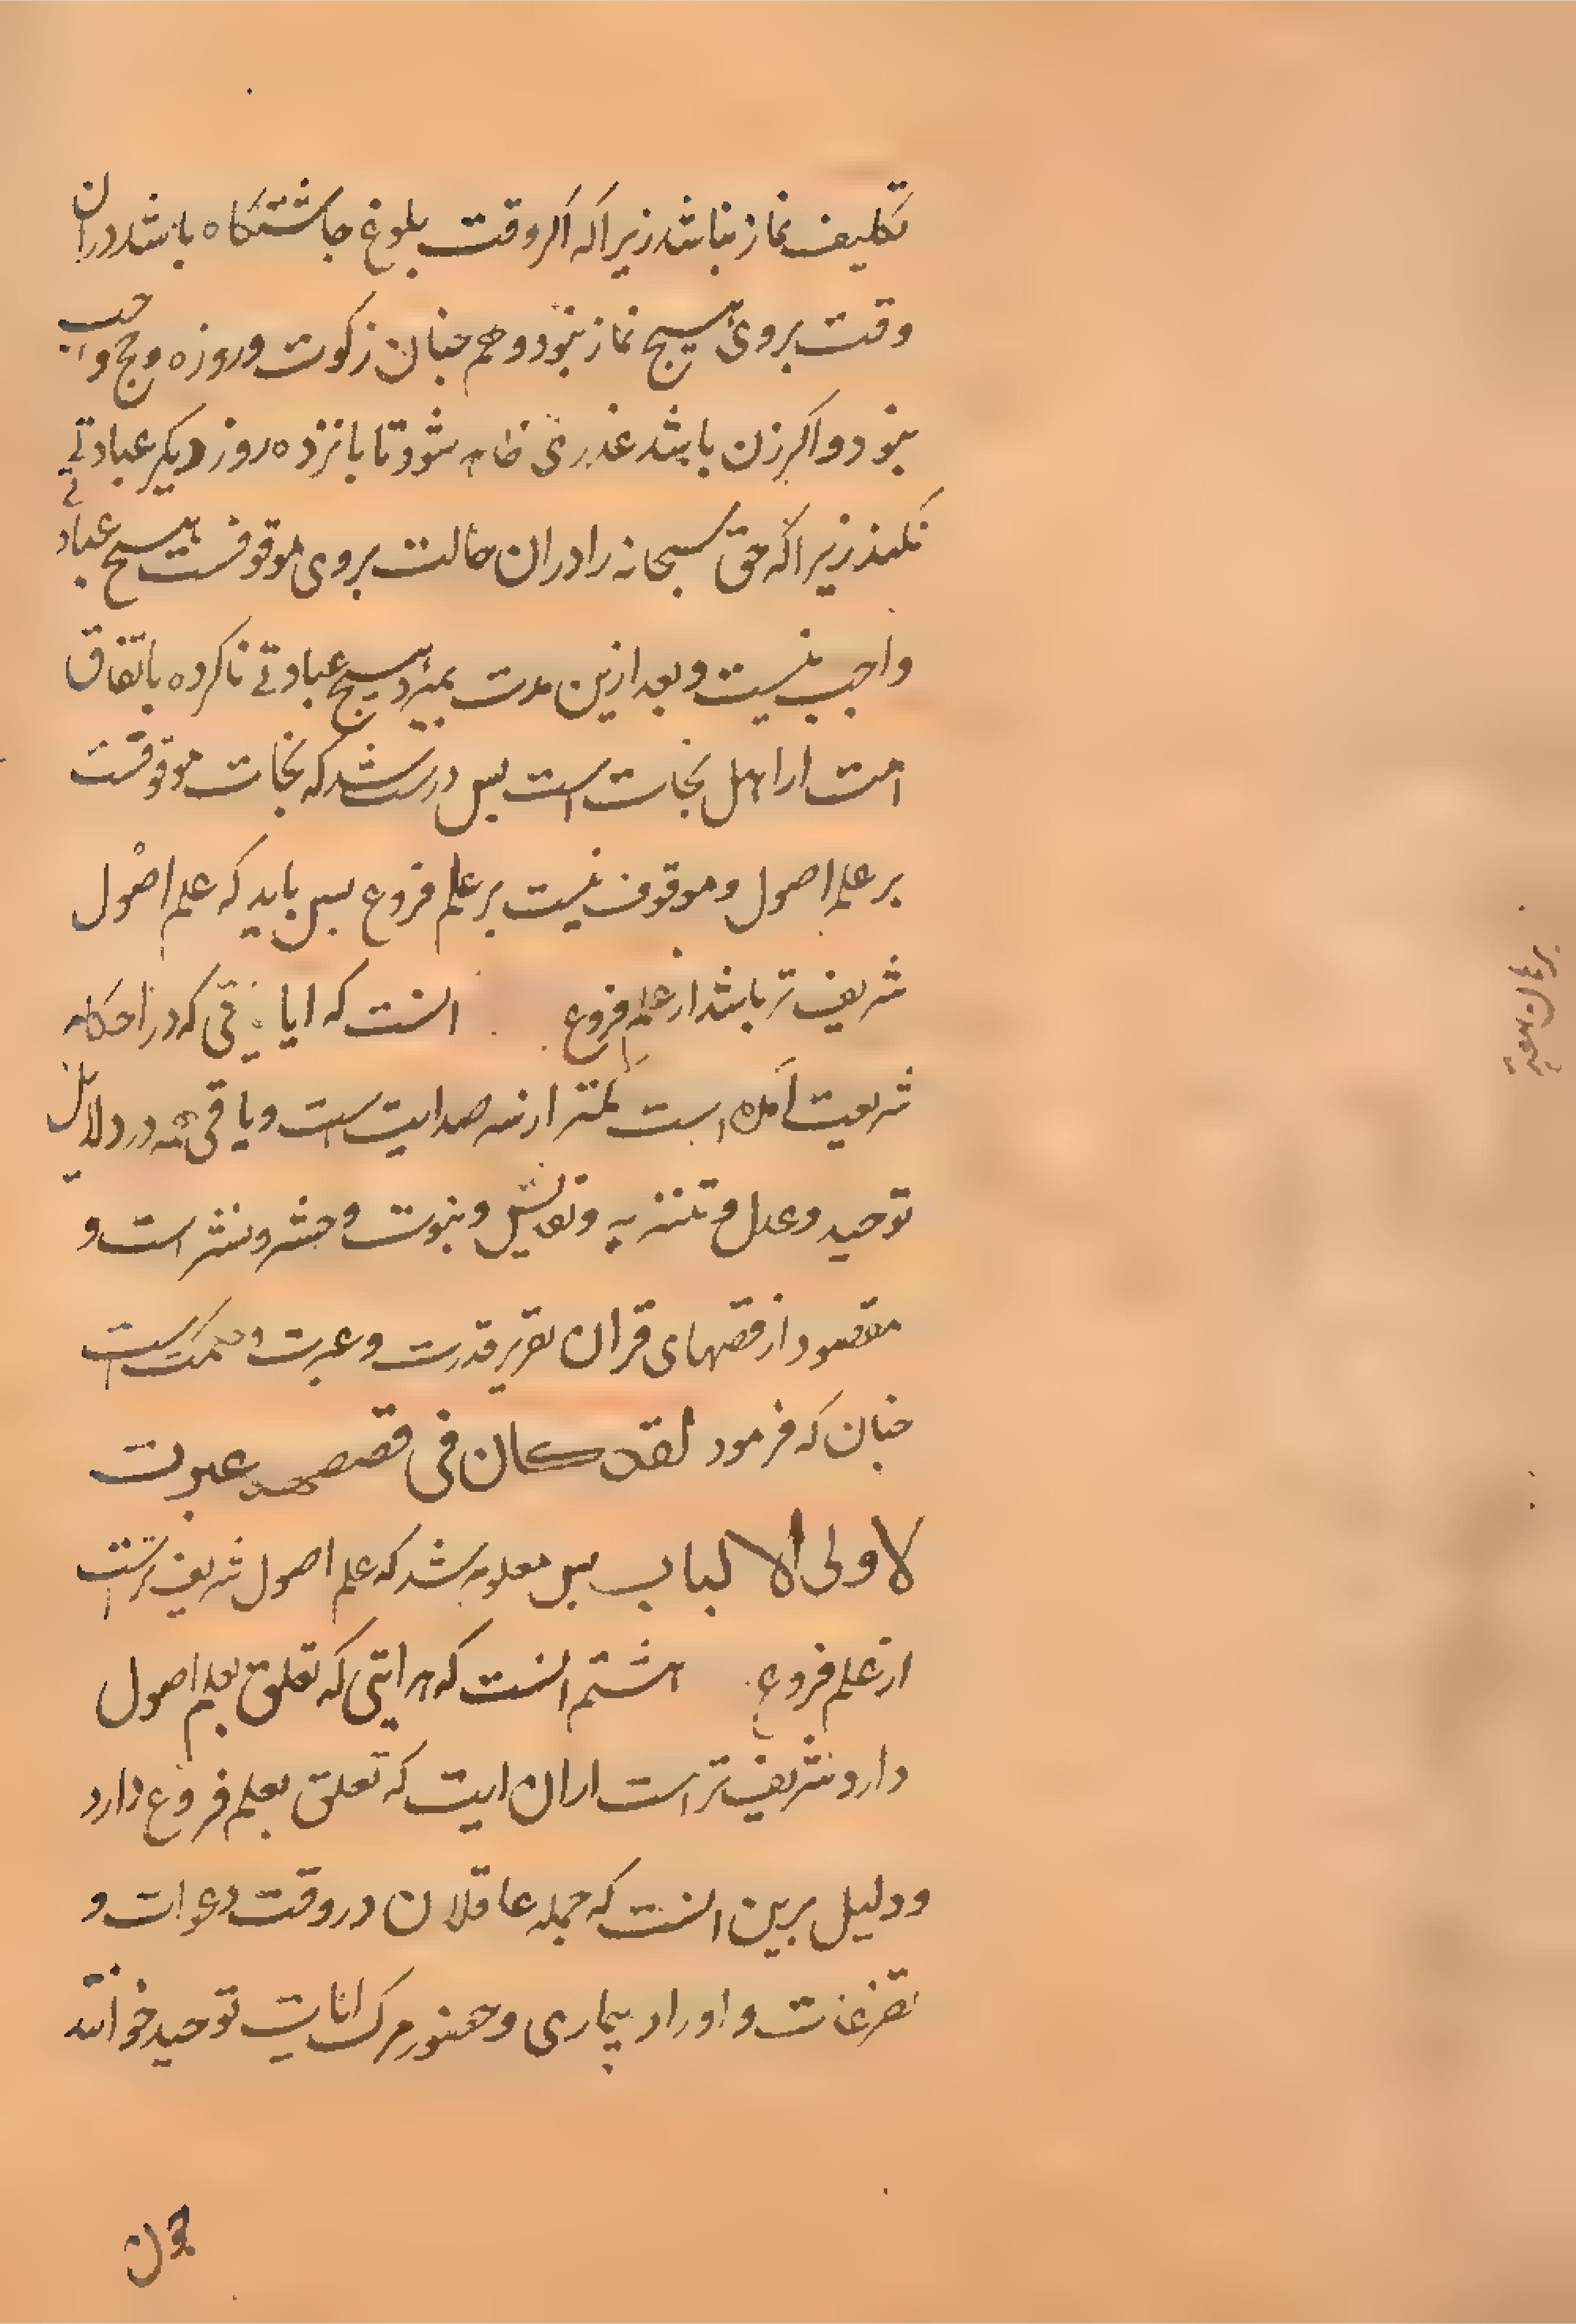 تکلیف نماز نباشد زیرا که اکر وقت بلوغ جاشتکاه باشد دران
وقت بروی هیچ نماز نبود و هم جنان زکوت و روزه و حج واجب
نبود و اکر زن باشد عذری ظاهر شود تا بانزده روز دیکر عبادتی
نکند زیرا که حق سبحانه را دران حالت بروی موقوفست هیچ عبادتی
واجب نیست و بعد ازین مدت بمیرد هیچ عبادتی ناکرده باتفاق
امت از اهل نجات است بس درست شد که نجات موقوفست
بر علم اصول و موقوف نیست بر علم فروع بس باید که علم اصول
شریف تر باشد از علم فروع انست که ایا فی که در احکام
شریعت آمده است کمتر از سه صد ایت است و باقی همه در دلایل
توحید و عدل و تنزیه و تقدیس و نبوت و حشر و نشر است و
مقصود از قصهای قران تقریر قدرت و عبرت و حکمت است
جنان که فرمود لقد کان فی قصصهم عبرت
لاولی الالباب بس معلوم شد که علم اصول شریف ترست
از علم فروع هشتم انست که هر ایتی که تعلق بعلم اصول
دارد شریف تر است از ان ایت که تعلق بعلم فروع دارد
و دلیل برین انست که جمله عاقلان در وقت دعوات و
تضرعات و اوراد بیماری و حضور مرک ایات توحید خوانند
جون
برهان هفتم